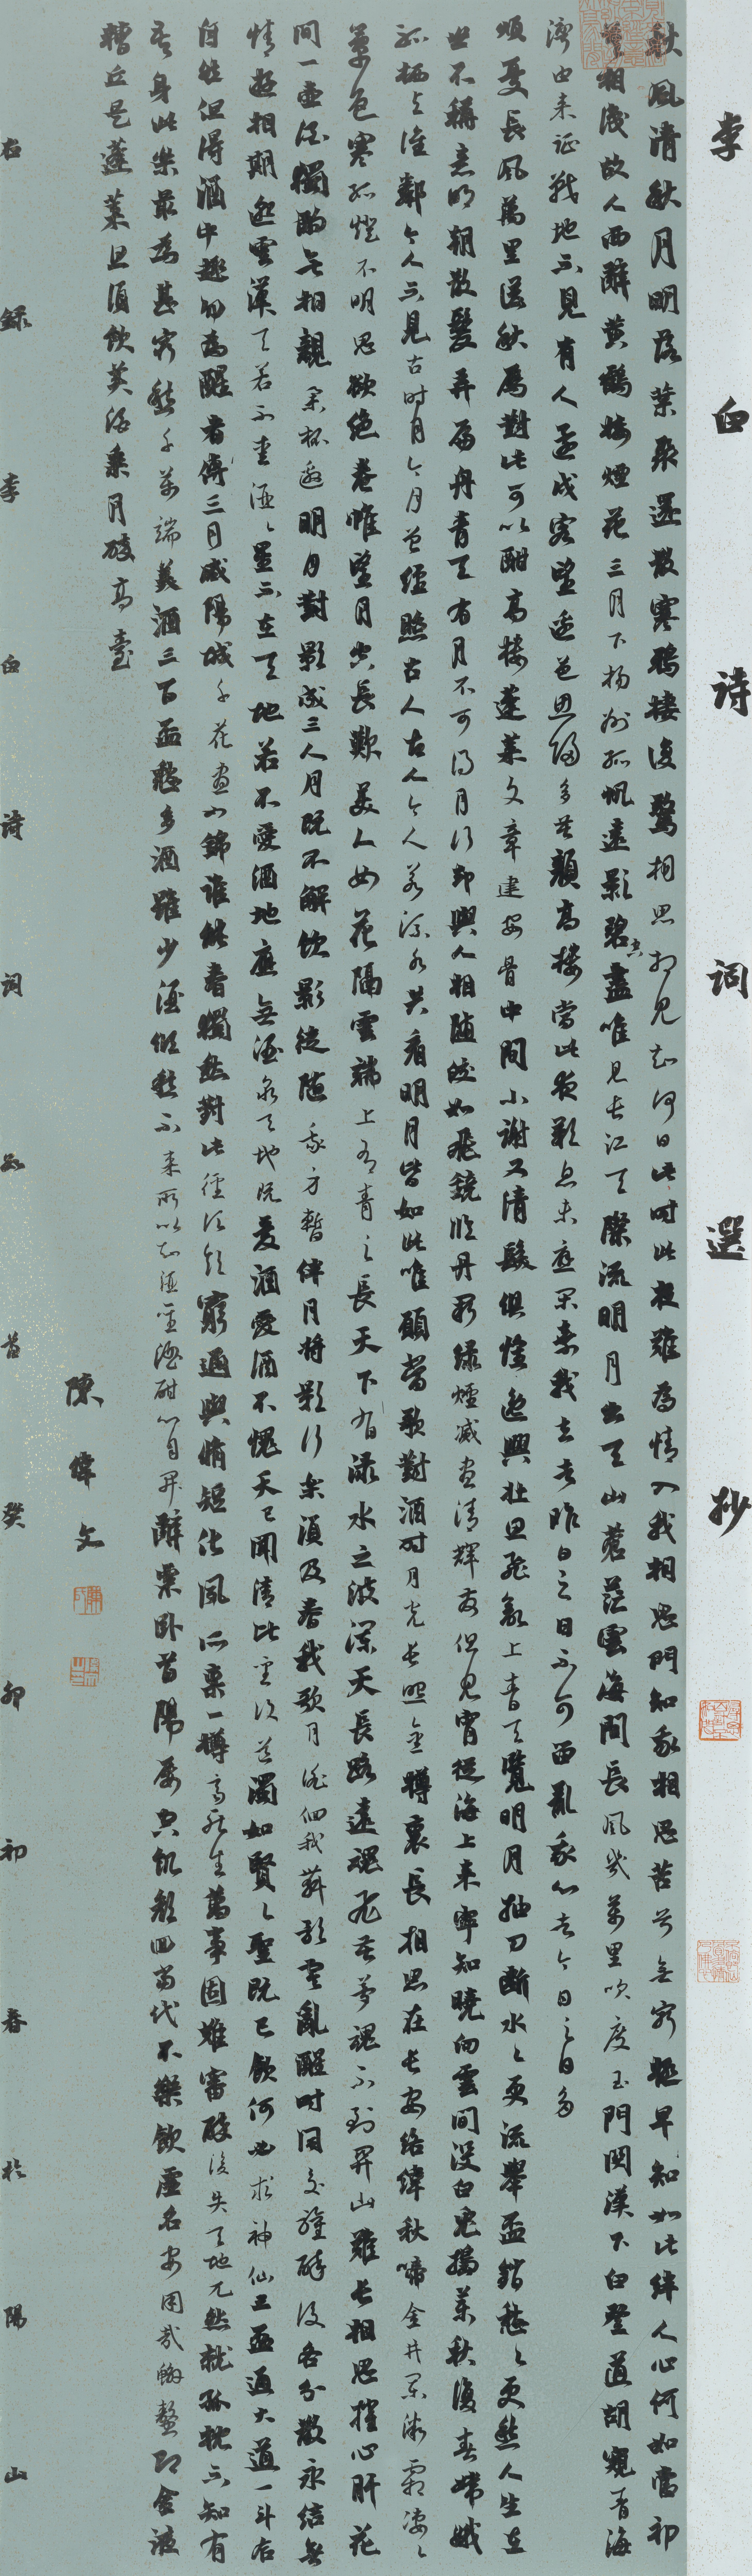 李白詩詞選抄
秋風清秋月明落葉聚還散寒鴉棲復驚相思相見知何日此時此夜難為情入我相思門知我相思苦兮無窮極早知如此絆人心何如當初
莫相識故人西辭黃鶴樓煙花三月下揚州孤帆遠影碧空盡唯見長江天際流明月出天山蒼茫雲海間長風幾萬里吹度玉門關漢下白登道胡窺青海
灣由來征戰地不見有人還戍客望邊邑思歸多苦顏高樓當此夜歎息未應閑棄我去者昨日之日不可留亂我心者今日之日多
煩憂長風萬里送秋雁對此可以酣高樓蓬萊文章建安骨中間小謝又清發俱懷逸興壯思飛欲上青天覽明月抽刀斷水々更流舉盃銷愁々更愁人生在
世不稱意明朝散髮弄扁舟青天有月不可得月行卻與人相隨皎如飛鏡臨丹闕綠煙滅盡清輝發但見宵從海上來寧知曉向雲間沒白兔搗藥秋復春嫦娥
孤栖與誰鄰今人不見古時月今月曾經照古人古人今人若流水共看明月皆如此唯願當歌對酒時月光長照金樽裏長相思在長安絡緯秋啼金井闌微霜淒々
簟色寒孤燈不明思欲絕卷帷望月空長歎美人如花隔雲端上有青之長天下有淥水之波瀾天長路遠魂飛苦夢魂不到關山難長相思摧心肝花
間一壺酒獨酌無相親舉杯邀明月對影成三人月既不解飲影徒隨我方暫伴月將影行樂須及春我歌月徘徊我舞影零亂醒時同交歡醉後各分散永結無
情遊相期邈雲漢天若不愛酒々星不在天地若不愛酒地應無酒泉天地既愛酒愛酒不愧天已聞清比聖復道濁如賢々聖既已飲何必求神仙三盃通大道一斗合
自然但得酒中趣勿為醒者傳三月咸陽城千花晝如錦誰能春獨愁對此徑須飲窮通與脩短化夙所稟一樽齊死生萬事固難審醉後失天地兀然就孤枕不知有
吾身此樂最為甚窮愁千萬端美酒三百盃愁多酒雖少酒傾愁不來所以知酒聖酒酣心自開辭粟臥首陽屢空飢顏回當代不樂飲虛名安用哉蟹螯即金液
糟丘是蓬萊且須飲美酒乘月醉高臺
陳偉文
右錄李白詩詞首癸卯初春於陽山